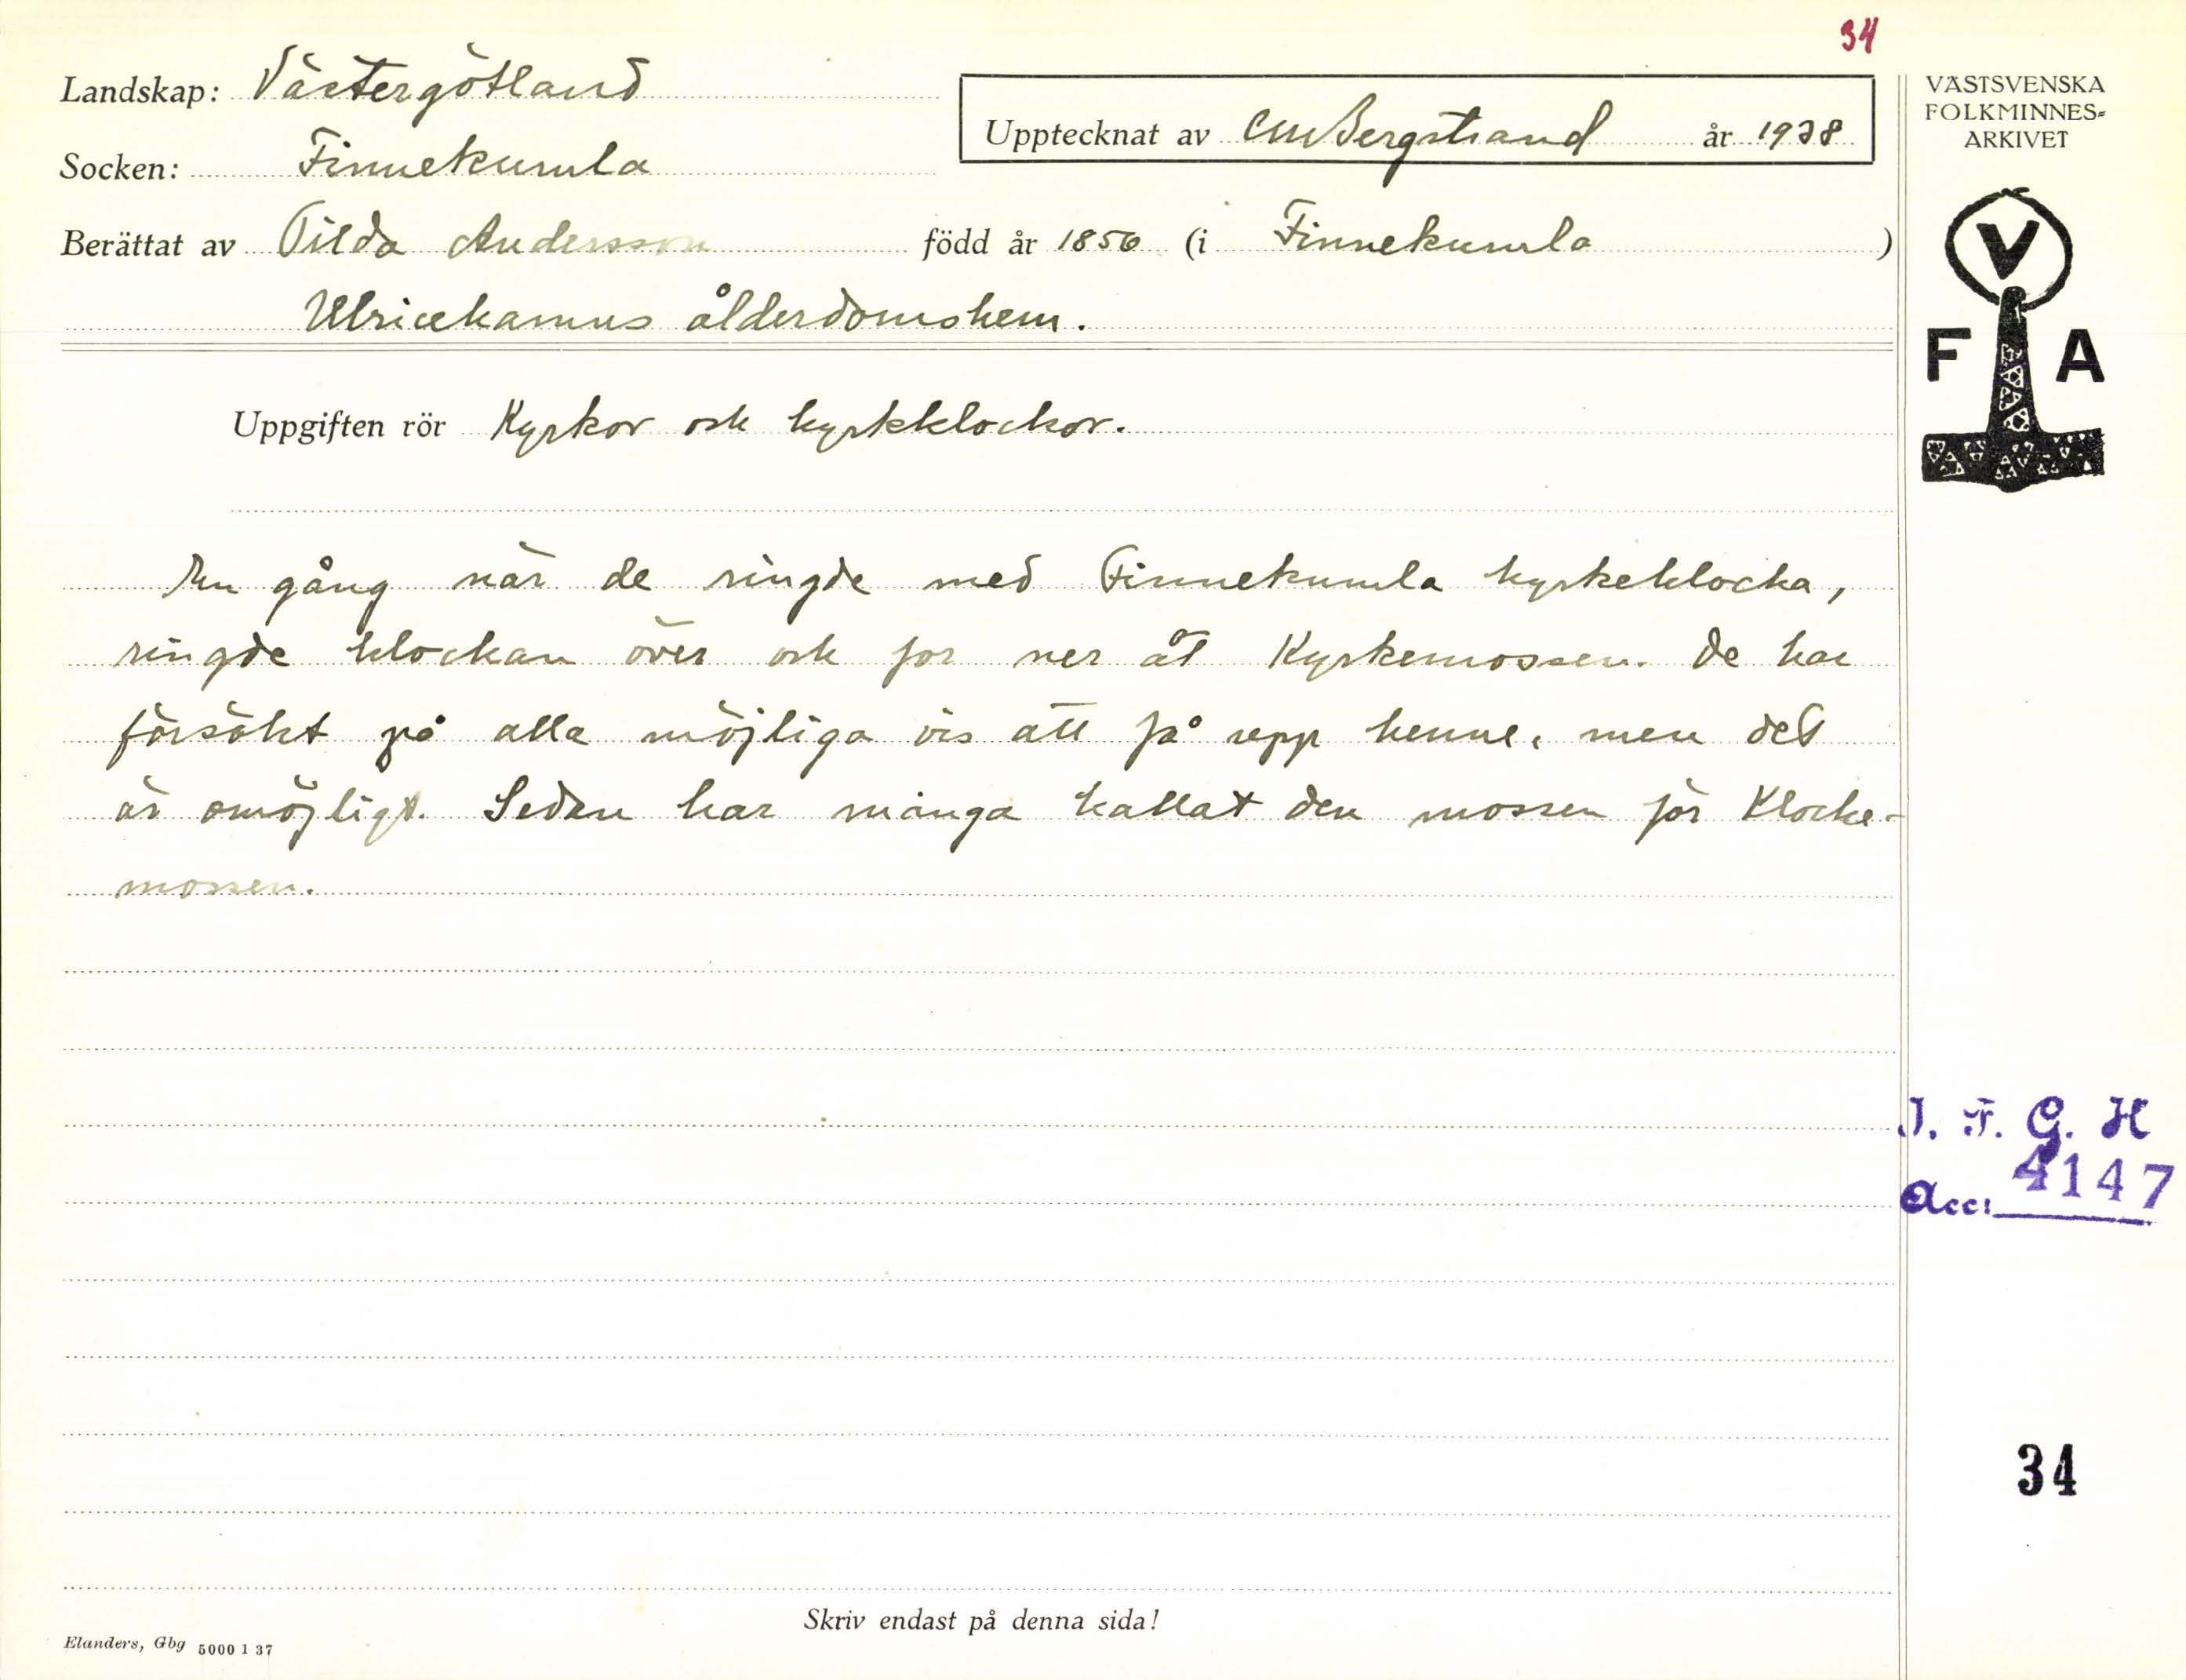 34
Landskap: Västergötland
Upptecknat av CMBergstrand år 1938
Socken: Finnekumla
Berättat av Tilda Andersson född år 1856 (i Finnekumla)
Ulricehamns ålderdomshem.
Uppgiften rör Kyrkor och kyrkklockor.
En gång när de ringde med Finnekumla kyrkeklocka,
ringde klockan över och for ner åt Kyrkemossen. De har
försökt på alla möjliga vis att få upp henne, men det
är omöjligt. Sedan har många kallat den mossen för Klocke-
mossen.
VÄSTSVENSKA
FOLKMINNES=
ARKIVET
V
F A
I. F. G. H
Acc: 4147
34
Skriv endast på denna sida!
Elanders, Gbg 5000 1 37